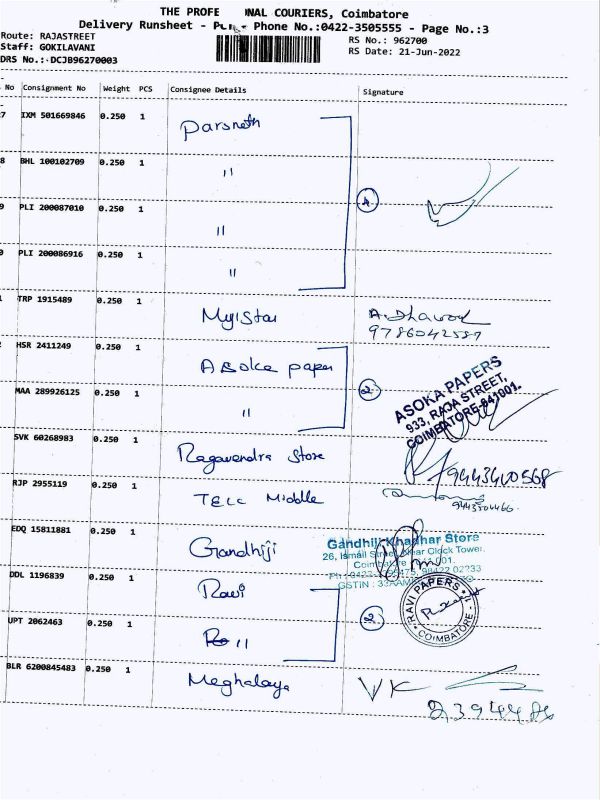 THE PROFE ONAL COURIERS, Coimbatore
Delivery Runsheet - PLI - Phone No.:0422-3505555 - Page No.:3
Route: RAJASTREET
RS No.: 962700
Staff: GOKILAVANI
RS Date: 21-Jun-2022
DRS No.:-DCJB96270003
No Consignment No Weight PCS Consignee Details Signature
7 IXM 501669846 0.250 1 Parsneth
8 BHL 100102709 0.250 1 "
9 PLI 200087010 0.250 1 " 4
0 PLI 200086916 0.250 1 "
1 TRP 1915489 0.250 1 Myistar A. Dhawod
9786042587
2 HSR 2411249 0.250 1 Asoka paper
MAA 289926125 0.250 1 " 2
ASOKA PAPERS
933, RAJA STREET,
COIMBATORE-641001.
SVK 60268983 0.250 1 Ragavendra Store 9443410568
RJP 2955119 0.250 1 TELC Middle
EDQ 15811881 0.250 1 Gandhiji
Gandhiji Khadhar Store
26, Ismail Street, Near Clock Tower.
Coimbatore
DDL 1196839 0.250 1 Ravi
UPT 2062463 0.250 1 " 2
RAVI PAPERS
COIMBATORE
BLR 6200845483 0.250 1 Meghalaya VK